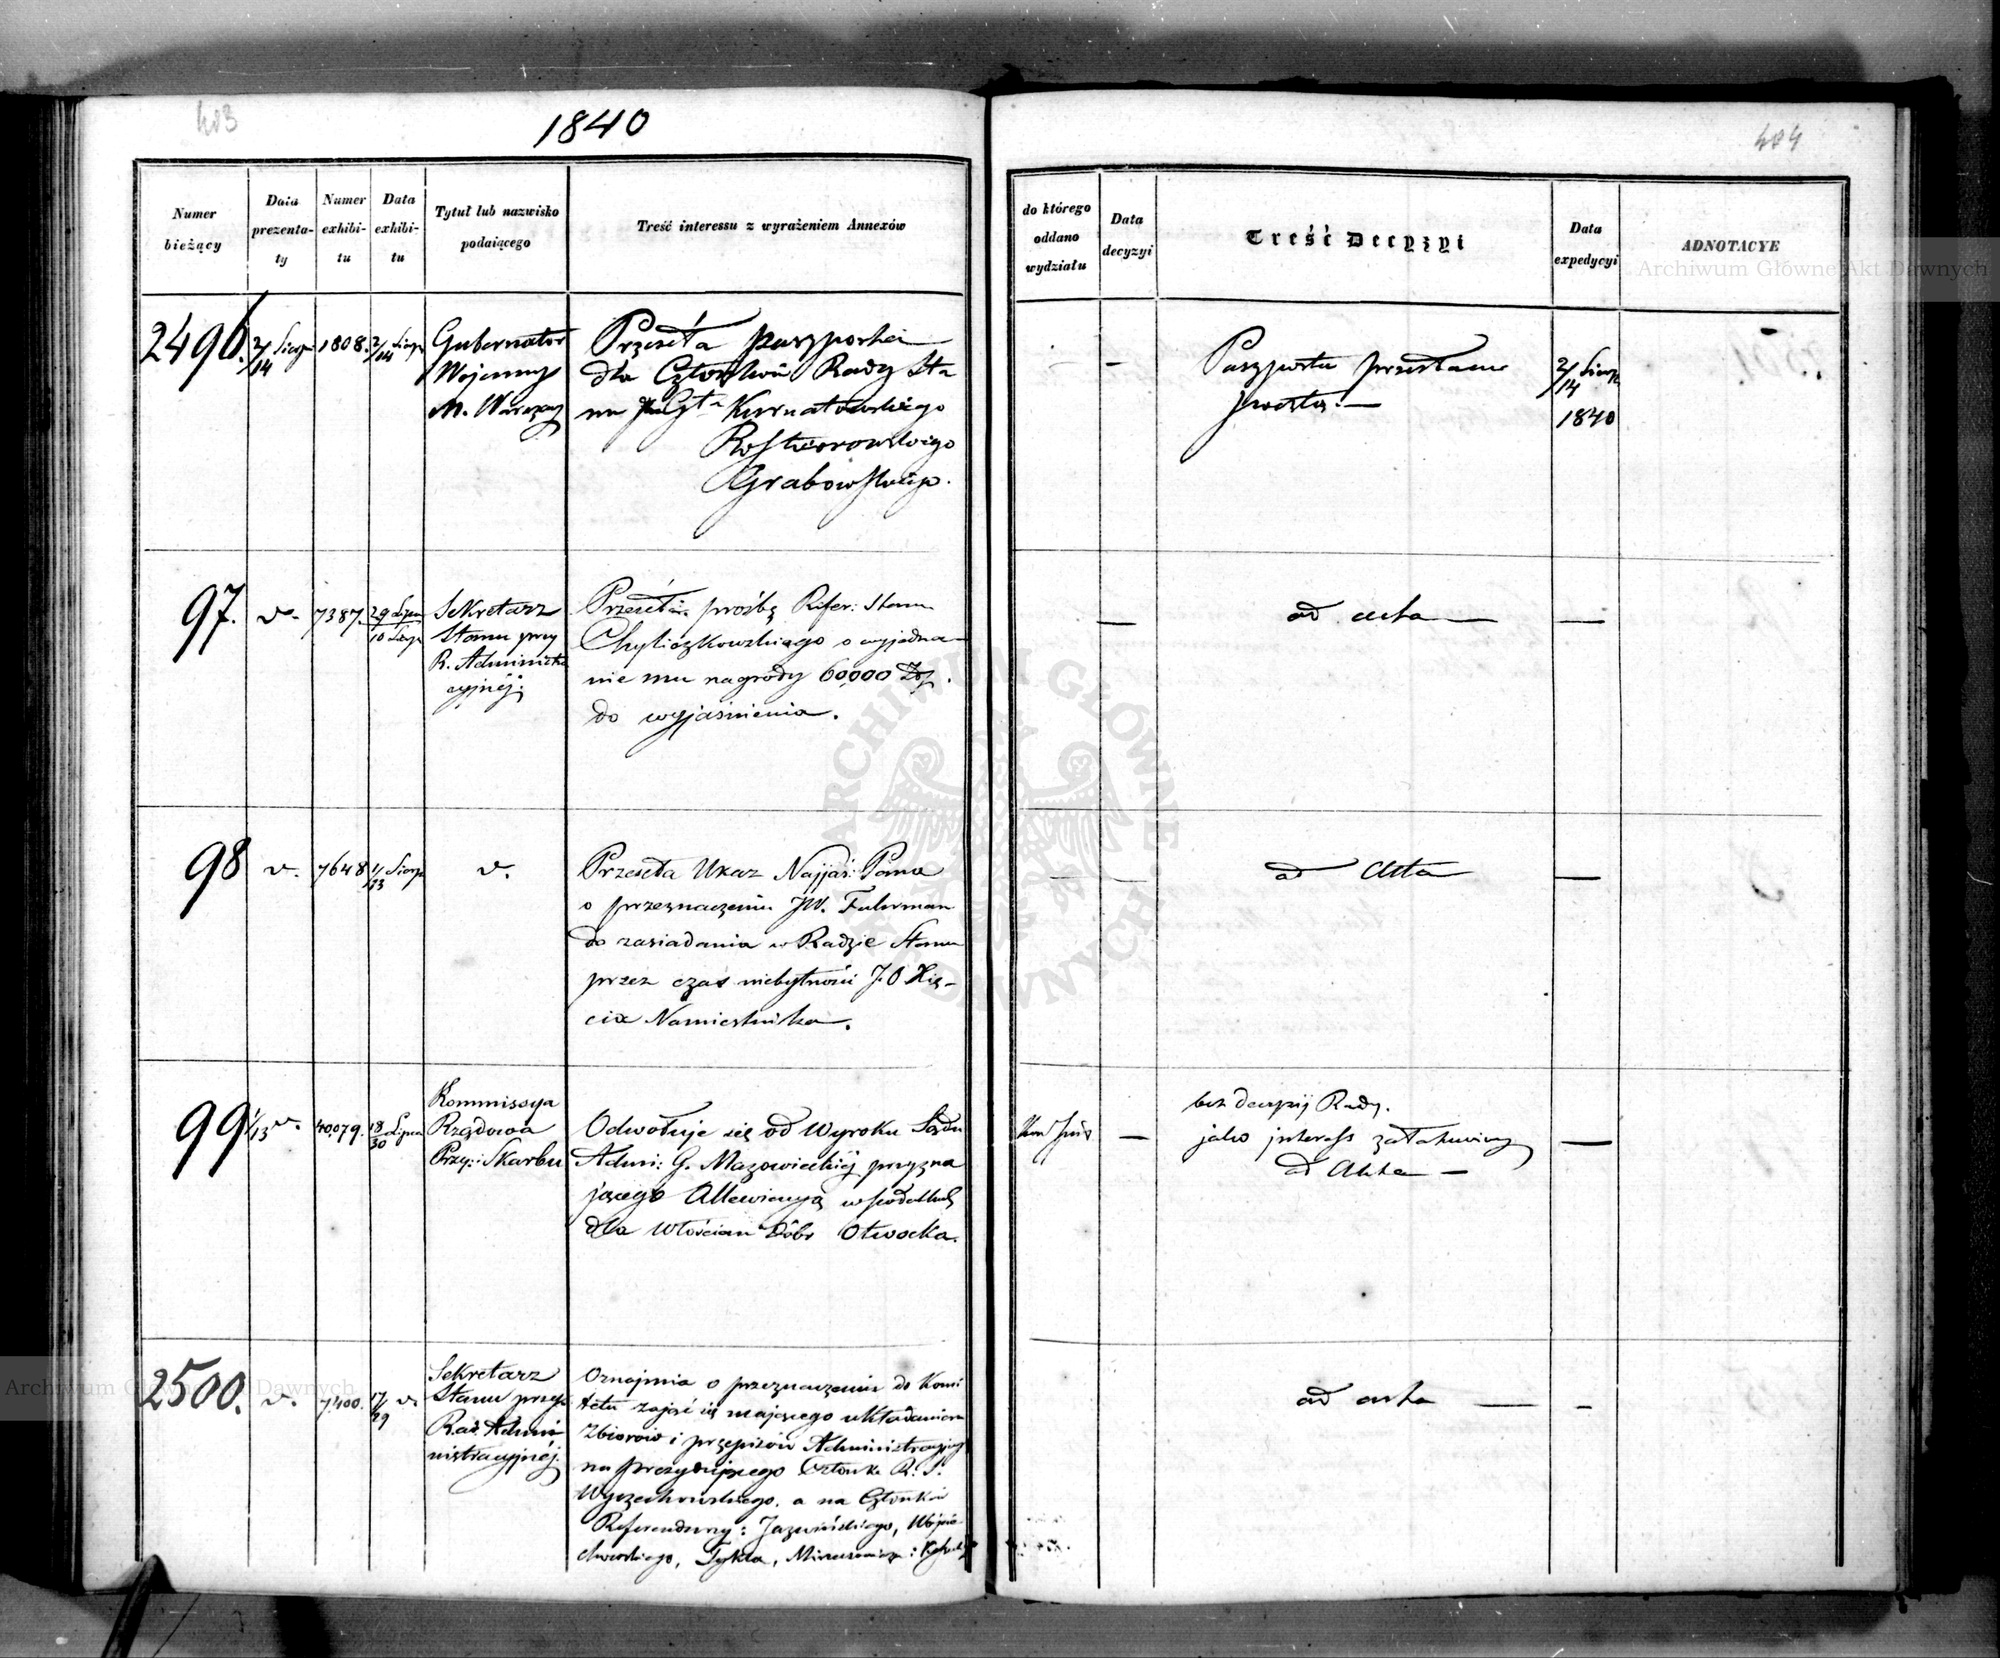 403
1840
Numer bieżący
Data prezentaty
Numer exhibitu
Data exhibitu
Tytuł lub nazwisko podaiącego
Treść interessu z wyrażeniem Annexów
2496.
2/14 Sierp
1808.
2/14 Sierp
Gubernator
Wojenny
M. Warszawy
Przeseła paszporta
dla Członków Rady Sta
nu
Kurnatowskiego
Rostworowskiego
Grabowskiego.
97.
v.
7387.
29 Lipca
10 Sierp
Sekretarz
Stanu przy
R. Administra
cyjnéj.
Przeseła prośbę Refer: Stanu
Chyliczkowskiego o wyjedna
nie mu nagrody 60,000 Złp.
do wyjaśnienia.
98
v.
7648
1/13 Sierp
v.
Przeseła Ukaz Najjaś: Pana
o przeznaczeniu JW. Fuhrman
do zasiadania w Radzie Stanu
przez czas niebytności J.O Xię-
cia Namiestnika.
99
1/13 v.
40079.
18/30 Lipca
Kommissya
Rządowa
Przy: Skarbu
Odwołuje się od Wyroku Sądu
Admi: G. Mazowieckiéj przyzna
jącego Allewiacyą w podatku
dla Włościan Dóbr Otwocka.
2500.
v.
7400.
17/29 v.
Sekretarz
Stanu przy
Rad. Admi
nistracyjnéj.
Oznajmia o przeznaczeniu do Komi
tetu zająć się mającego układaniem
Zbiorów i przepisów Administracyjnych
na prezydującego Członka R. S.
Wyczechowskiego, a na Członków
Referendarzy: Jazwińskiego,
Tykla,
404
do którego oddano wydziału
Data decyzyi
Treść Decyzyi
Data expedycyi
ADNOTACYE
–
Paszporta przesłane
zostały.—
2/14 Sierp
1840
—
ad acta —
—
—
ad Acta
—
—
bez decyzyi Rady.
jako interess załatwiony
ad Akta —
—
ad acta —
–
Archiwum Główne Akt Dawnych
ARCHIWUM GŁÓWNE AKT DAWNYCH
Archiwum Główne Akt Dawnych